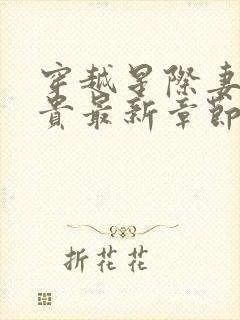 穿越星际妻
贵最新章節
折花花